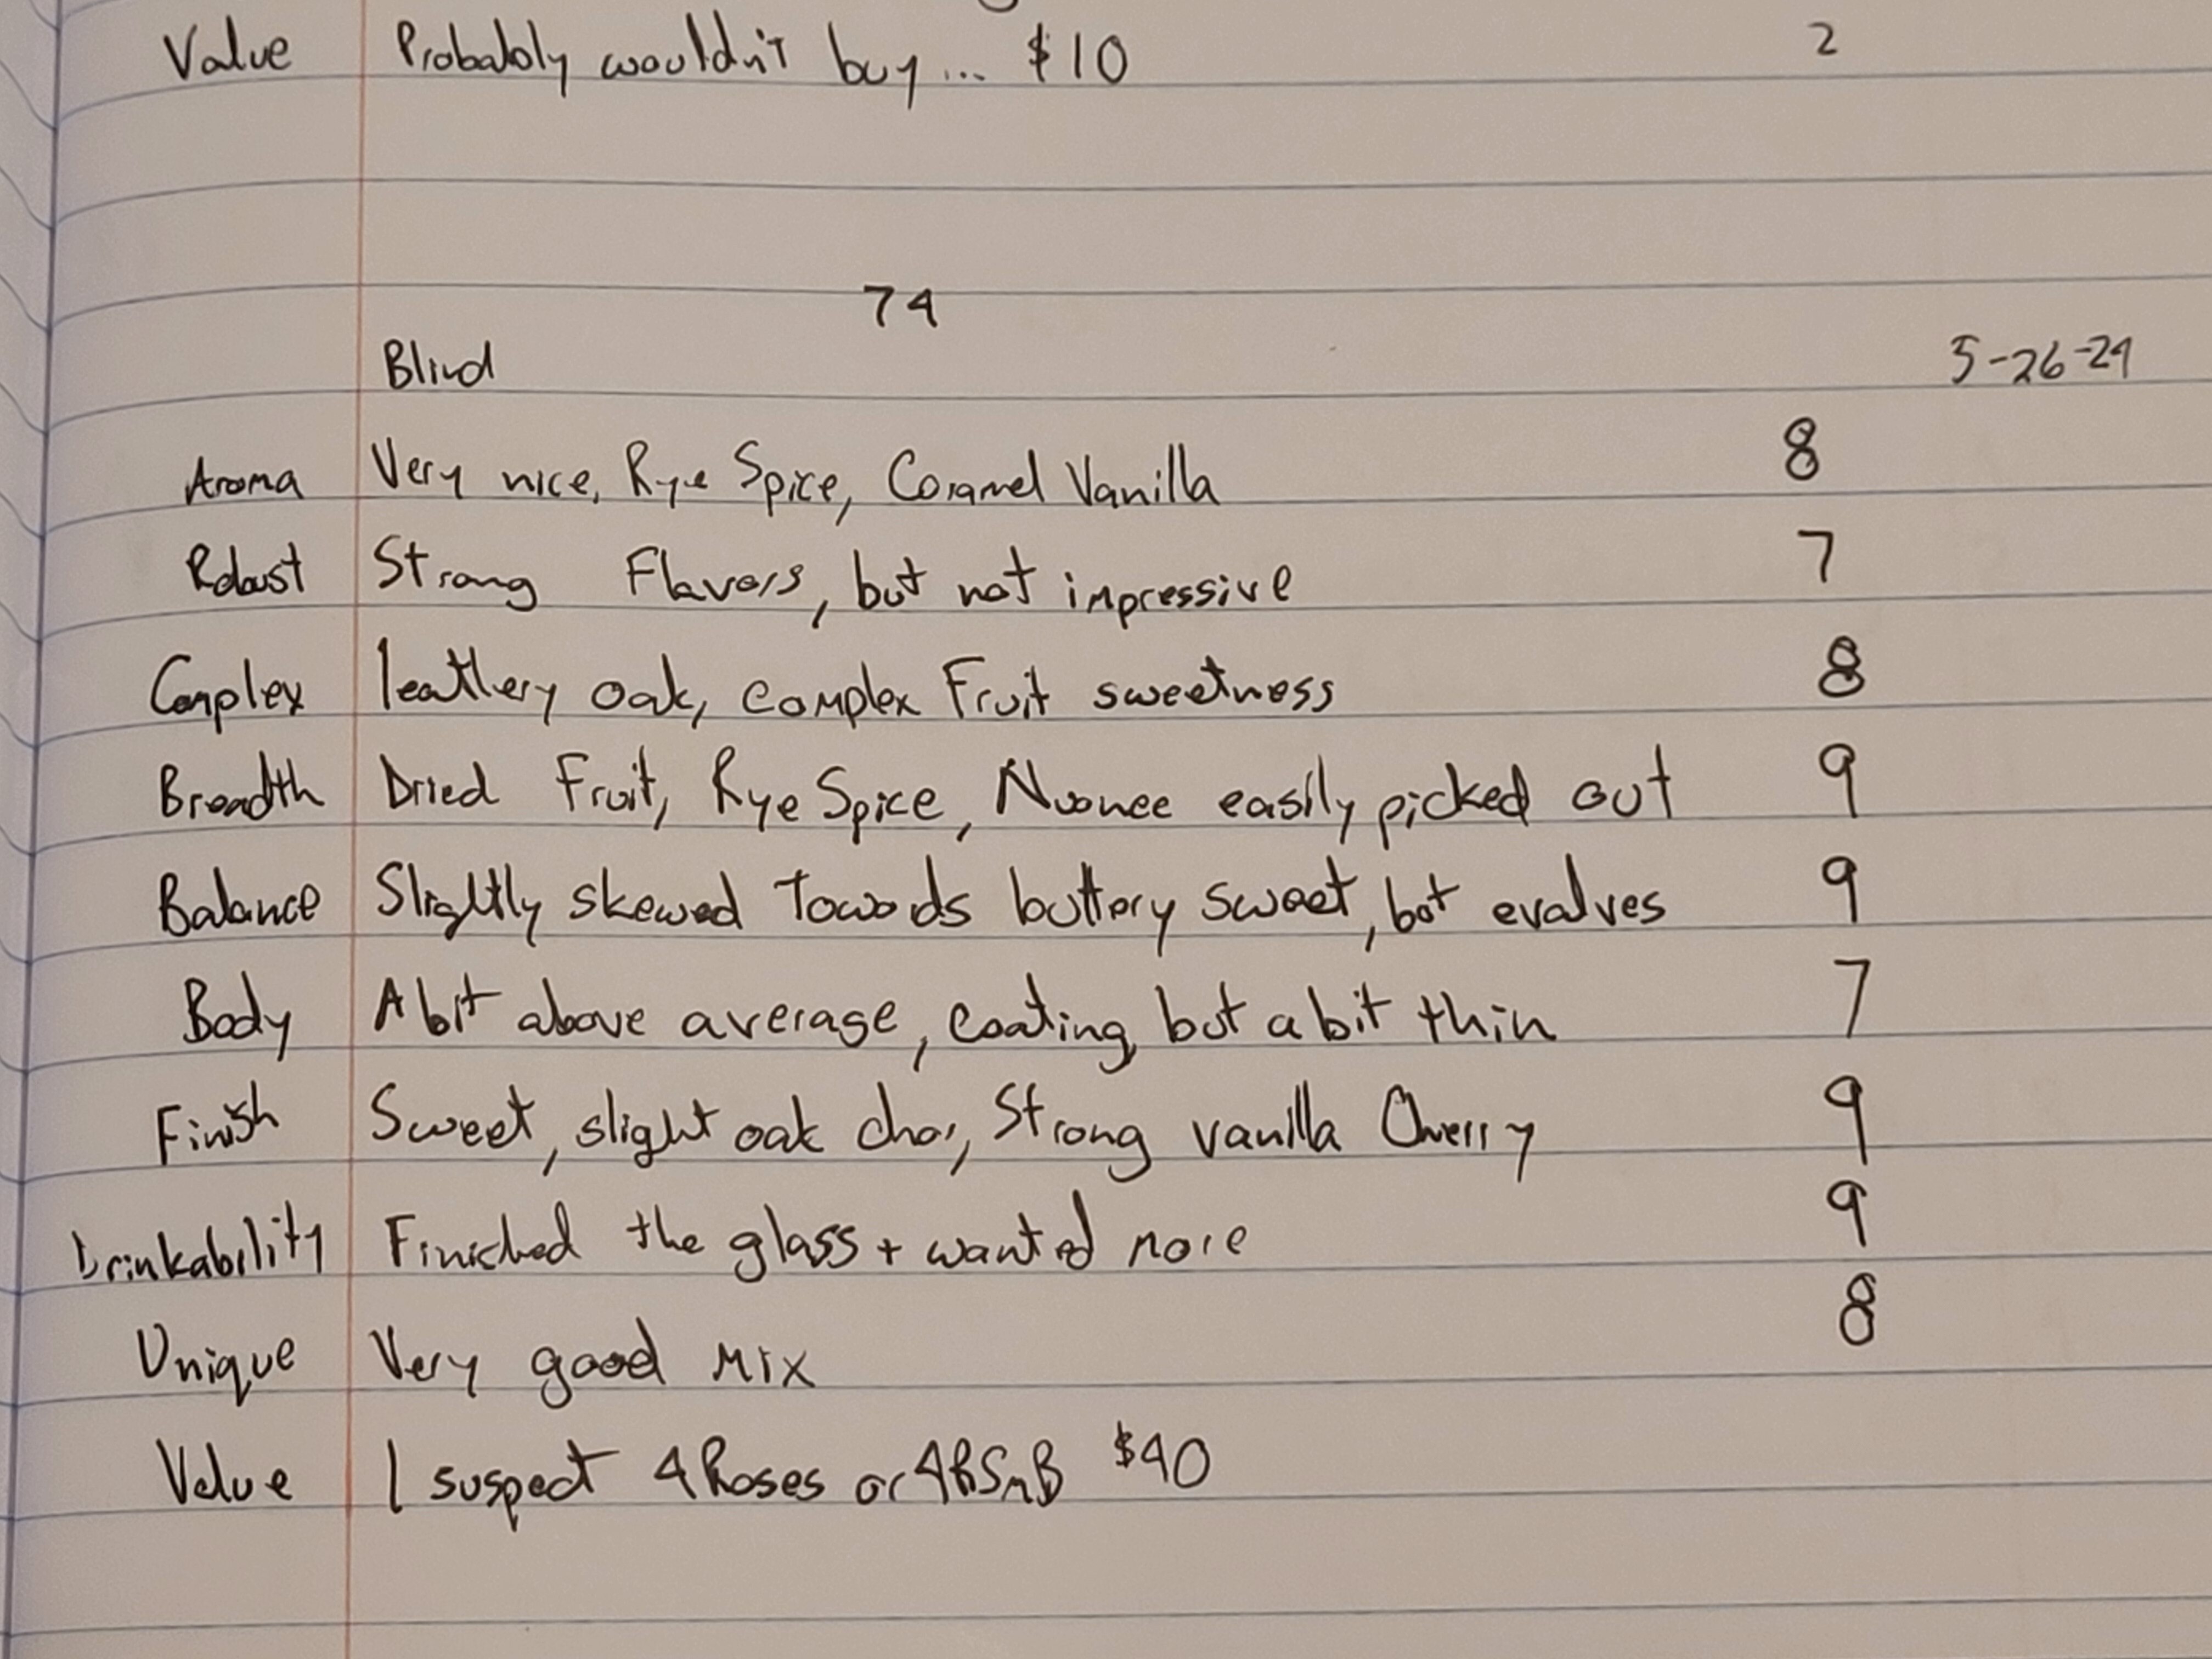 Value Probably wouldn't buy... $10 2
74
Blind 5-26-24
Aroma Very nice, Rye Spice, Caramel Vanilla 8
Robust Strong Flavors, but not impressive 7
Complex leathery oak, complex Fruit sweetness 8
Breadth Dried Fruit, Rye Spice, Nuance easily picked out 9
Balance Slightly skewed Towards buttery sweet, but evolves 9
Body A bit above average, coating, but a bit thin 7
Finish Sweet, slight oak char, Strong vanilla Cherry 9
Drinkability Finished the glass + wanted more 9
Unique Very good Mix 8
Value I suspect 4Roses or 4RSmB $40